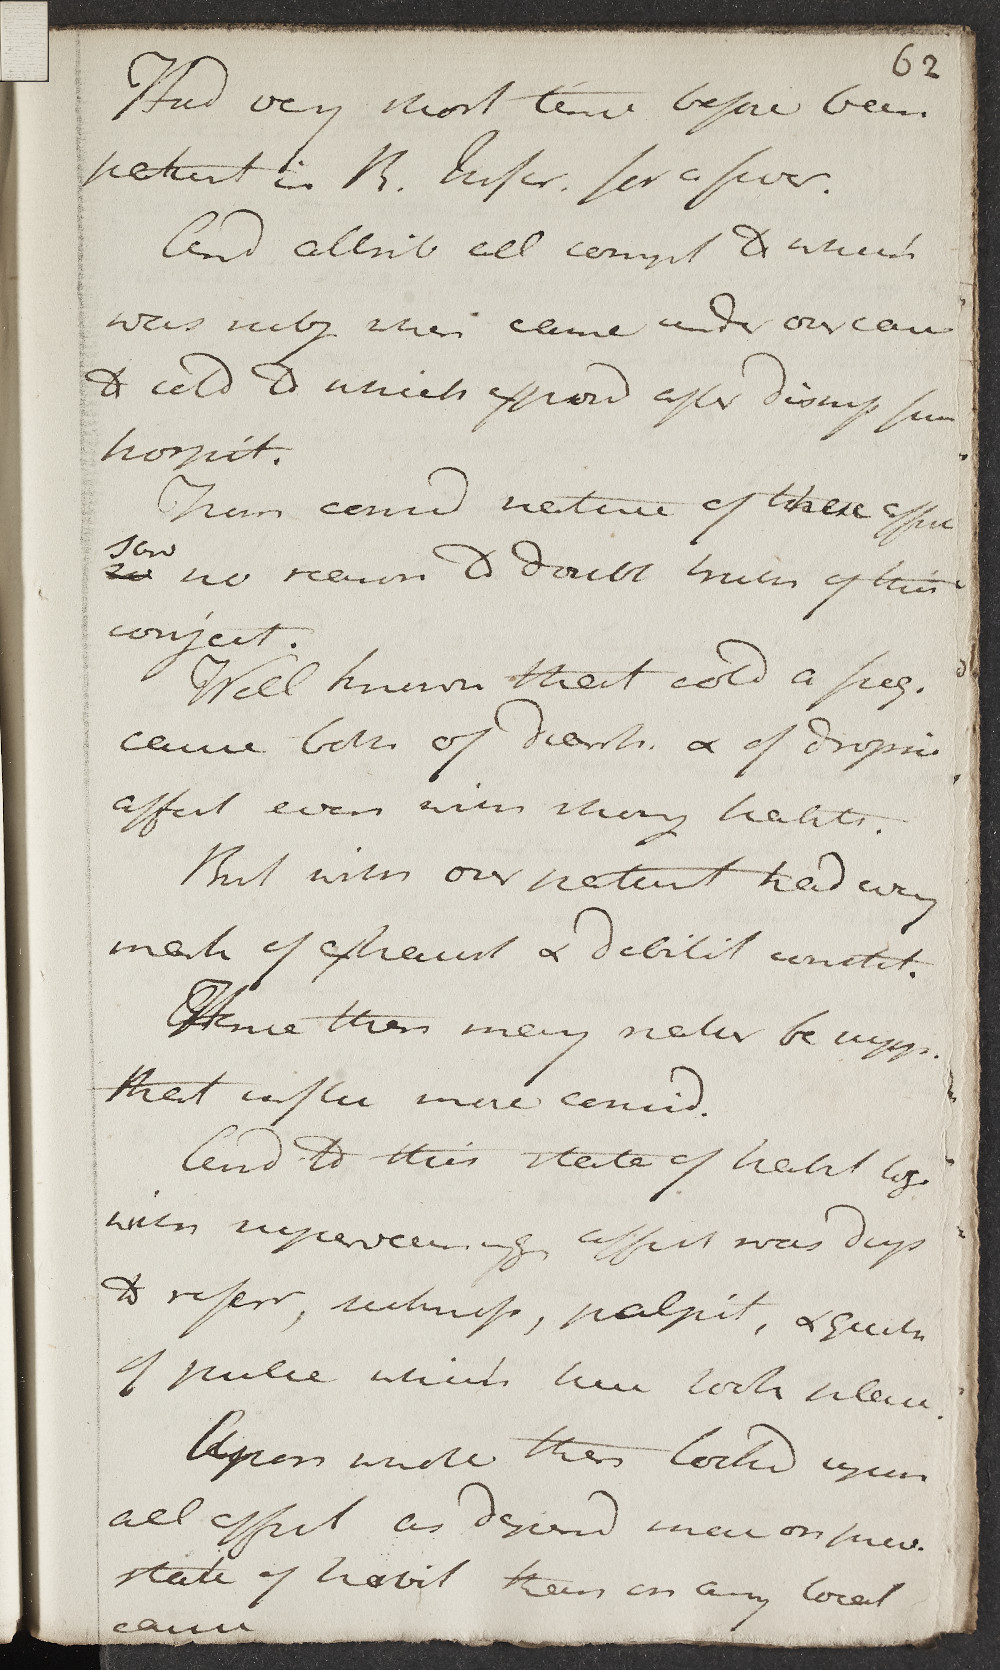 62
Had very short time before been
patient in R. Infir. for a fever.
And attrib all compl to which
was subj when came under our care
to cold to which exposd after dismiss from
hospit.
From consid nature of these affec
saw no reason to doubt truth of this
conject.
Well known that cold a freq.
cause both of diarrh. & of dropsic
affect even with strong habits.
But with our patient had every
mark of exhaust & debilit constit.
Hence then may natur be supp.
that influ more consid.
And to this state of habit tog.
with supervening affect was disp
to refer, sickness, palpit, & quickn
of pulse which here took place.
Upon whole then lookd upon
all affect as depend more on prev.
state of habit than on any local
cause